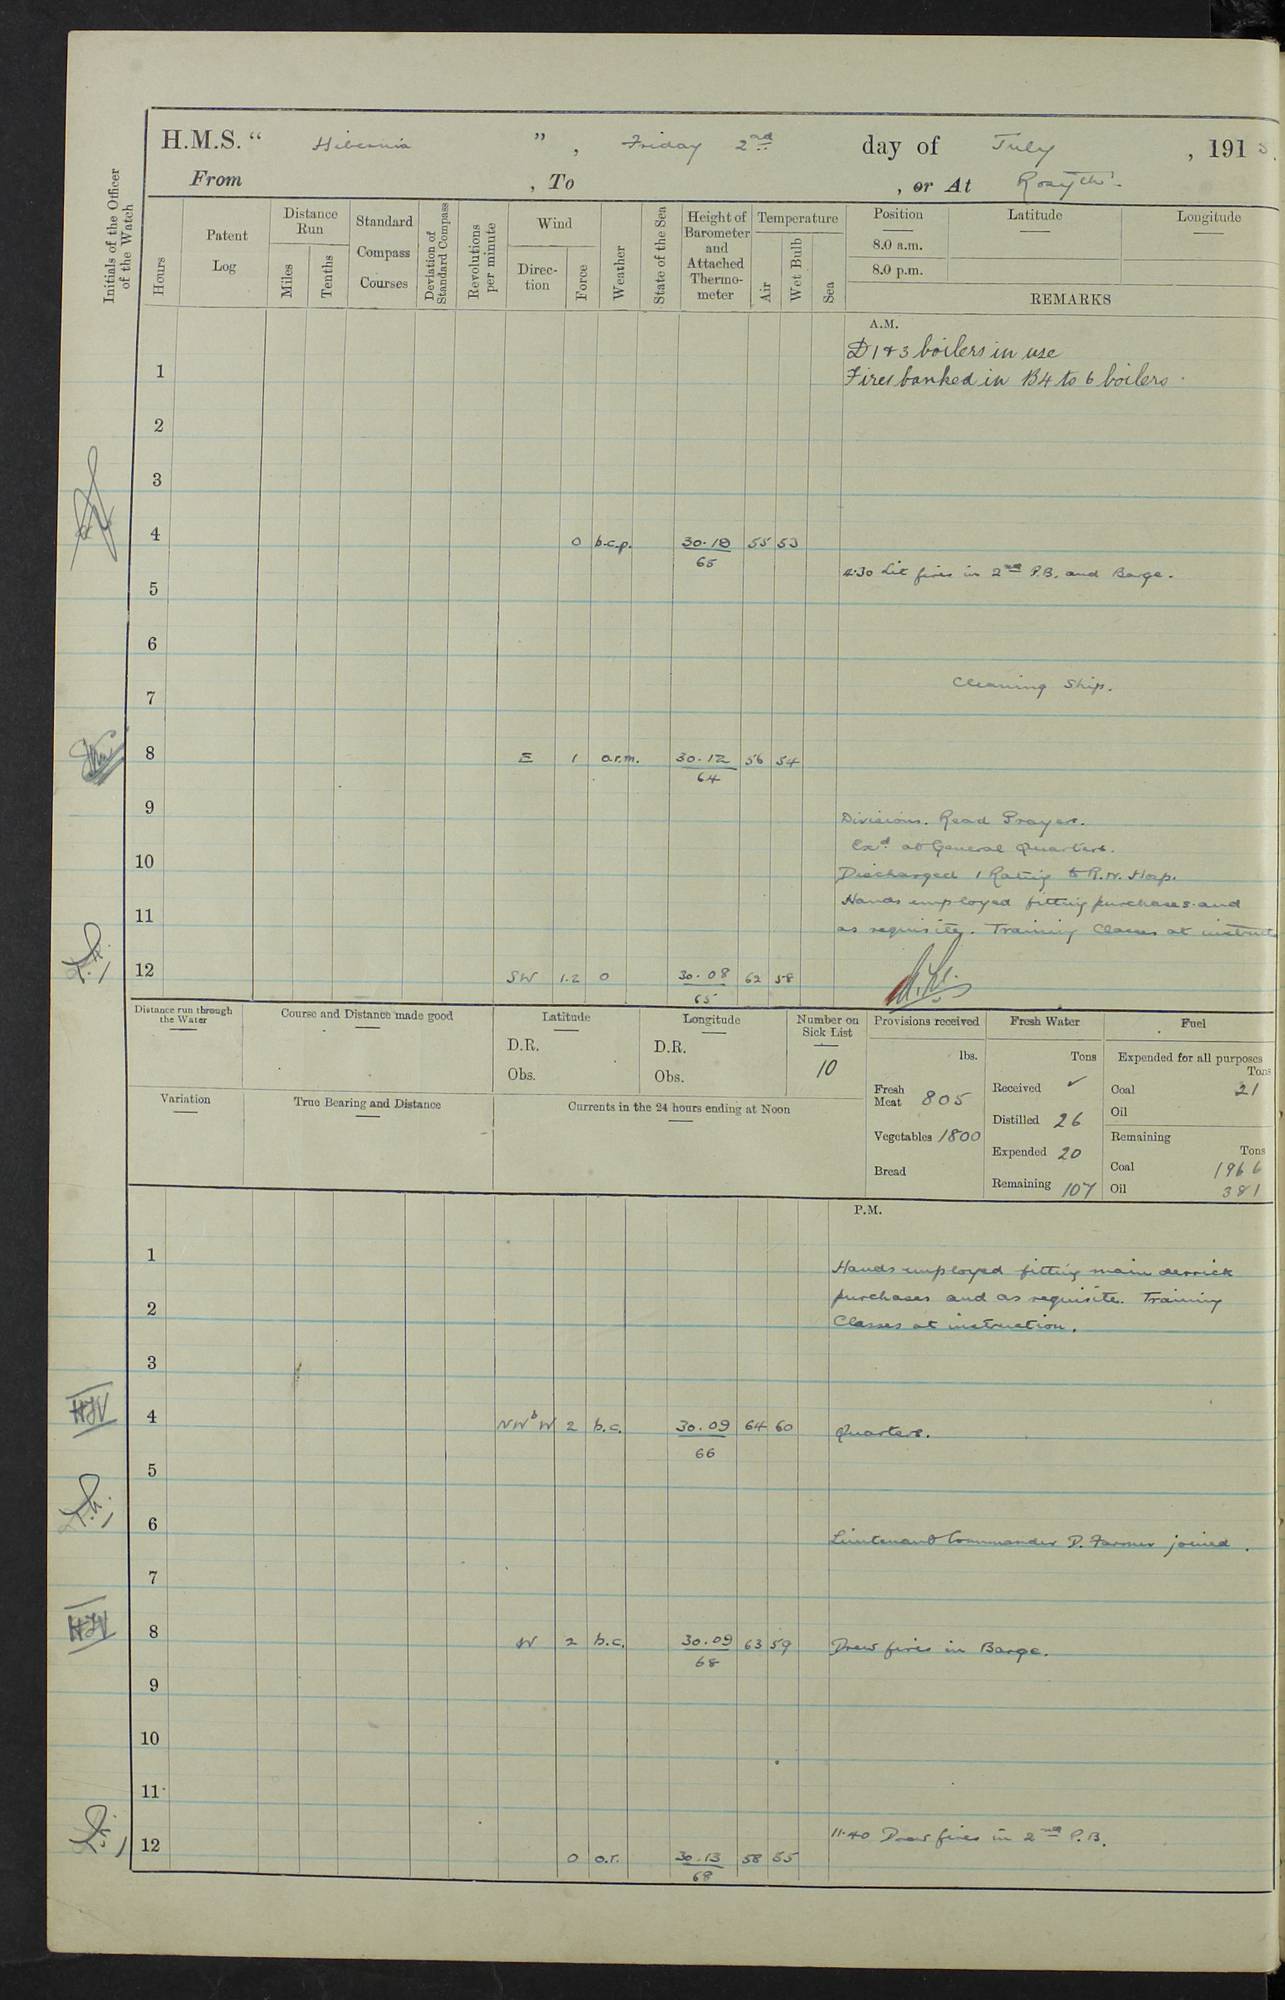 H.M.S. " Hibernia ", Friday 2nd day of July, 1915.
From , To , or At Rosyth.
Initials of the Officer of the Watch
Hours
Patent Log
Distance Run
Miles
Tenths
Standard Compass Courses
Deviation of Standard Compass
Revolutions per minute
Wind
Direc-tion
Force
Weather
State of the Sea
Height of Barometer and Attached Thermo-meter
Temperature
Air
Wet Bulb
Sea
Position
Latitude
Longitude
8.0 a.m.
8.0 p.m.
REMARKS
A.M.
D 1 & 3 boilers in use
1
Fires banked in B4 to 6 boilers.
2
3
4 0 b.c.p. 30.18 55 53
65
4.30 Lit fires in 2nd P.B. and Barge.
5
6
Cleaning Ship.
7
8 E 1 o.r.m. 30.12 56 54
64
9
Divisions. Read Prayers.
Exd. at General Quarters.
10
Discharged 1 Rating to R.N. Hosp.
Hands employed fitting purchases and
11
as requisite. Training Classes at instruct
12 SW 1.2 0 30.08 62 58
65
Distance run through the Water
Course and Distance made good
Latitude
D.R.
Obs.
Longitude
D.R.
Obs.
Number on Sick List
10
Provisions received
lbs.
Fresh Meat 805
Vegetables 1800
Bread
Fresh Water
Tons
Received ✓
Distilled 26
Expended 20
Remaining 107
Fuel
Expended for all purposes
Tons
Coal 21
Oil
Remaining
Tons
Coal 1966
Oil 381
Variation
True Bearing and Distance
Currents in the 24 hours ending at Noon
P.M.
1
Hands employed fitting main derrick
2
purchases and as requisite. Training
Classes at instruction.
3
HJV
4 NWbW 2 b.c. 30.09 64 60 Quarters.
66
5
6
Lieutenant Commander D. Farmer joined.
7
HJV
8 W 2 b.c. 30.09 63 59 Drew fires in Barge.
68
9
10
11
11.40 Drew fires in 2nd P.B.
12 0 o.r. 30.13 58 55
68